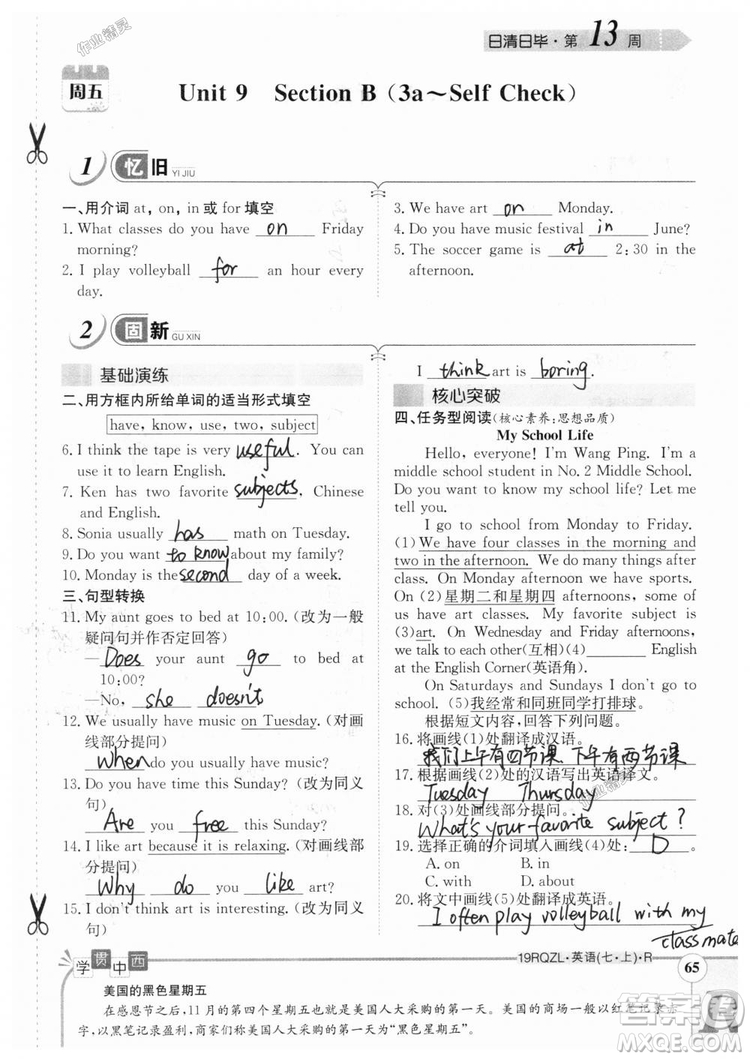 作业精灵
日清日毕·第13周
周五
Unit 9 Section B (3a～Self Check)
1 忆旧 YI JIU
一、用介词 at, on, in 或 for 填空
1. What classes do you have on Friday
morning?
2. I play volleyball for an hour every
day.
3. We have art on Monday.
4. Do you have music festival in June?
5. The soccer game is at 2:30 in the
afternoon.
2 固新 GU XIN
基础演练
二、用方框内所给单词的适当形式填空
have, know, use, two, subject
6. I think the tape is very useful. You can
use it to learn English.
7. Ken has two favorite subjects, Chinese
and English.
8. Sonia usually has math on Tuesday.
9. Do you want to know about my family?
10. Monday is the second day of a week.
三、句型转换
11. My aunt goes to bed at 10:00. (改为一般
疑问句并作否定回答)
—Does your aunt go to bed at
10:00?
—No, she doesn't
12. We usually have music on Tuesday. (对画
线部分提问)
When do you usually have music?
13. Do you have time this Sunday? (改为同义
句)
Are you free this Sunday?
14. I like art because it is relaxing. (对画线部
分提问)
Why do you like art?
15. I don't think art is interesting. (改为同义
句)
I think art is boring.
核心突破
四、任务型阅读(核心素养:思想品质)
My School Life
Hello, everyone! I'm Wang Ping. I'm a
middle school student in No. 2 Middle School.
Do you want to know my school life? Let me
tell you.
I go to school from Monday to Friday.
(1) We have four classes in the morning and
two in the afternoon. We do many things after
class. On Monday afternoon, we have music.
On (2) 星期二和星期四 afternoons, some of
us have art classes. My favorite subject is
(3) art. On Wednesday and Friday afternoons,
we talk to each other(互相)(4) English
at the English Corner(英语角).
On Saturdays and Sundays I don't go to
school. (5)我经常和同班同学打排球。
根据短文内容,回答下列问题。
16. 将画线(1)处翻译成汉语。
我们上午有四节课,下午有两节课
17. 根据画线(2)处的汉语写出英语译文。
Tuesday Thursday
18. 对(3)处画线部分提问。
What's your favorite subject?
19. 选择正确的介词填入画线(4)处: D
A. on B. in
C. with D. for
20. 将文中画线(5)处翻译成英语。
I often play volleyball with my
classmate
学贯中西
19RQZL·英语(七·上)·R
65
美国的黑色星期五
在感恩节之后,11月的第四个星期五也就是美国人大采购的第一天。美国的商场一般以红笔记录赤
字,以黑笔记录盈利,商家们称美国人大采购的第一天为“黑色星期五”。